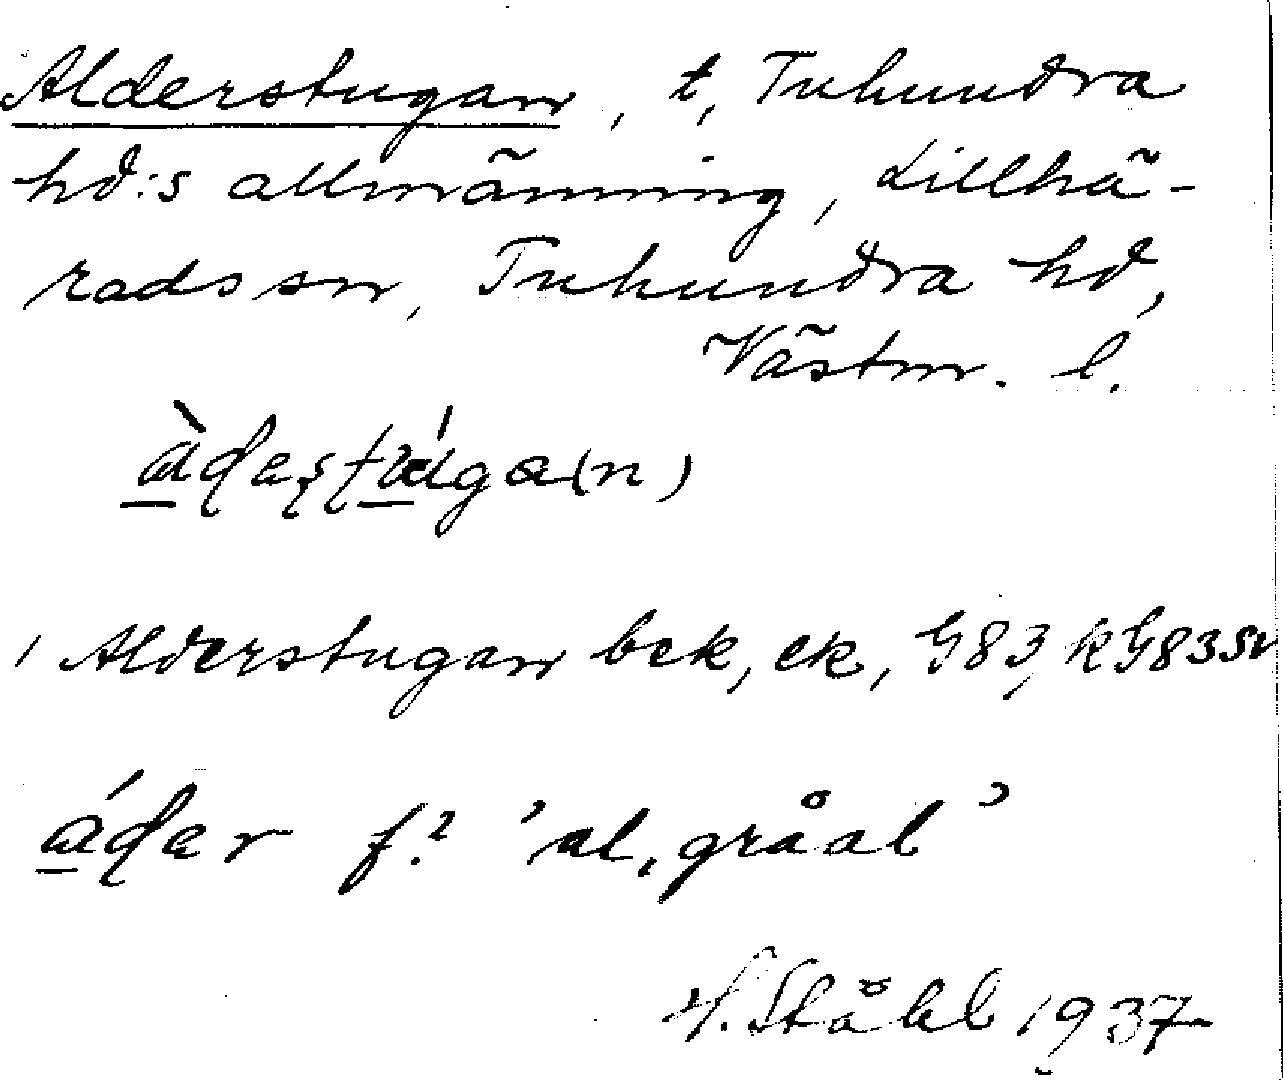 Alderstugan, t, Tuhundra
hd:s allmänning, Lillhä-
rads sn, Tuhundra hd,
Västm. l.
àdaʂʈúga(n)
, Alderstugan bek, ek, G83, kG83SV
áɖar f.? 'al, gråal'
H. Ståhl 1937